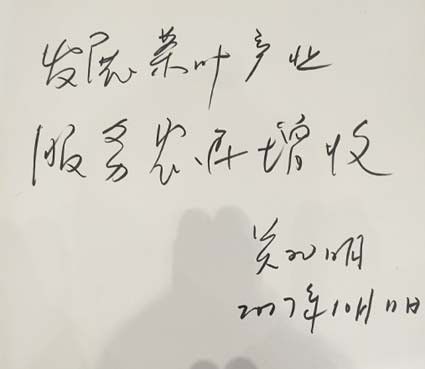 发展茶叶产业
服务农民增收
吴孔明
2007年10月11日